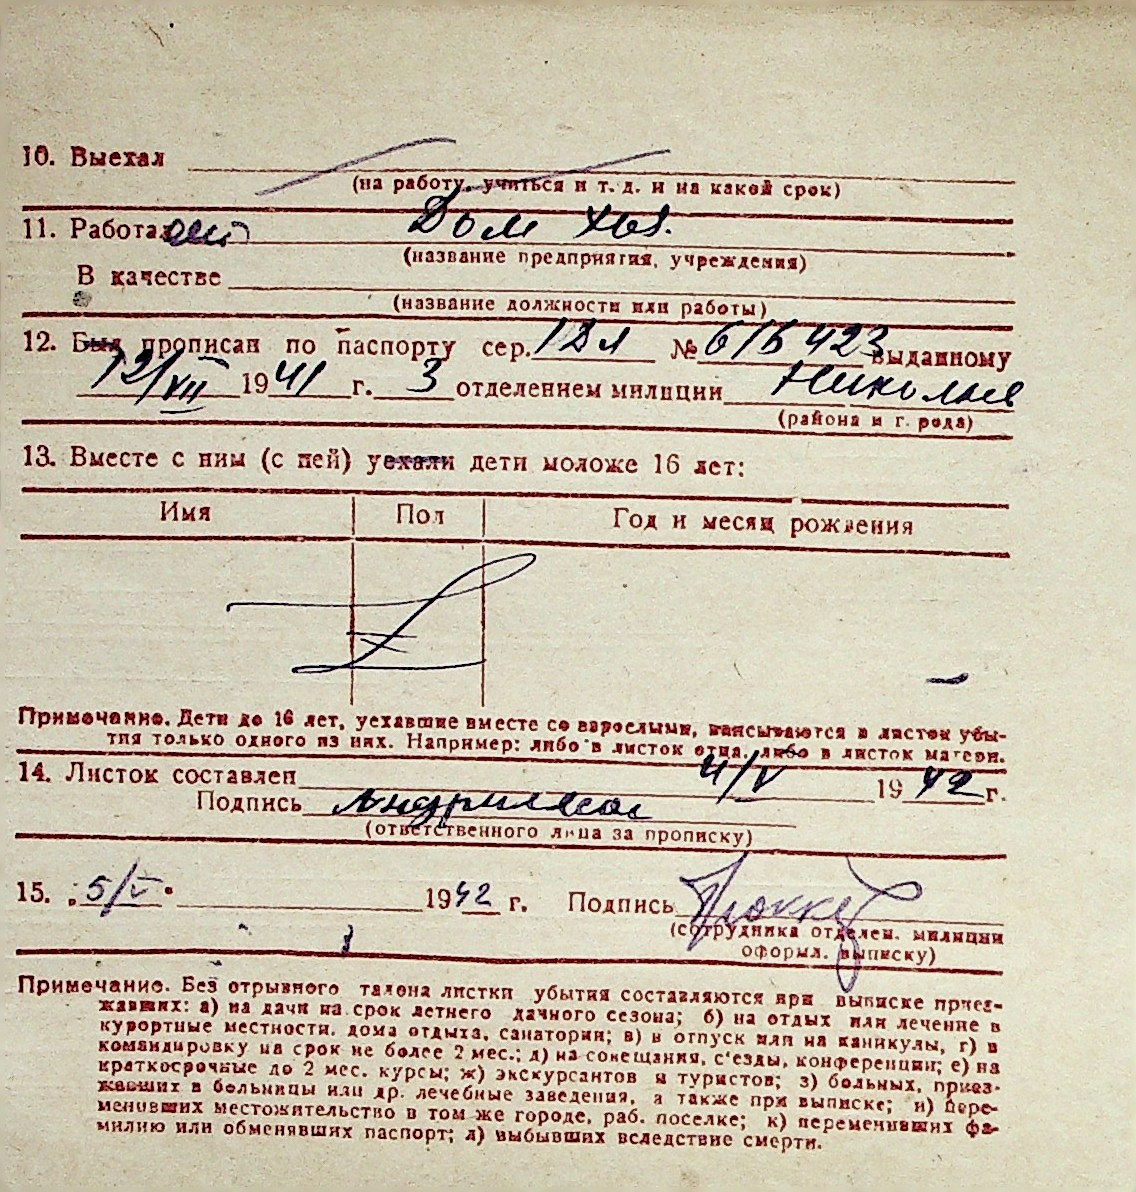 10. Выехал
(на работу, учиться и т. д. и на какой срок)
11. Работал Дом хоз.
(название предприятия, учреждения)
В качестве
(название должности или работы)
12. Был прописан по паспорту сер. № выданному
12/VII 1941 г. 3 отделением милиции
(района и города)
13. Вместе с ним (с ней) уехали дети моложе 16 лет:
Имя Пол Год и месяц рождения
Примечание. Дети до 16 лет, уехавшие вместе со взрослыми, вписываются в листок убы-
тия только одного из них. Например: либо в листок отца, либо в листок матери.
14. Листок составлен 4/V 1942 г.
Подпись
(ответственного лица за прописку)
15. „5/V" 1942 г. Подпись
(сотрудника отделен. милиции
оформл. выписку)
Примечание. Без отрывного талона листки убытия составляются при выписке приез-
жавших: а) на дачи на срок летнего дачного сезона; б) на отдых или лечение в
курортные местности, дома отдыха, санатории; в) в отпуск или на каникулы, г) в
командировку на срок не более 2 мес.; д) на совещания, с'езды, конференции; е) на
краткосрочные до 2 мес. курсы; ж) экскурсантов и туристов; з) больных, приез-
жавших в больницы или др. лечебные заведения, а также при выписке; и) пере-
менивших местожительство в том же городе, раб. поселке; к) переменивших фа-
милию или обменявших паспорт; л) выбывших вследствие смерти.